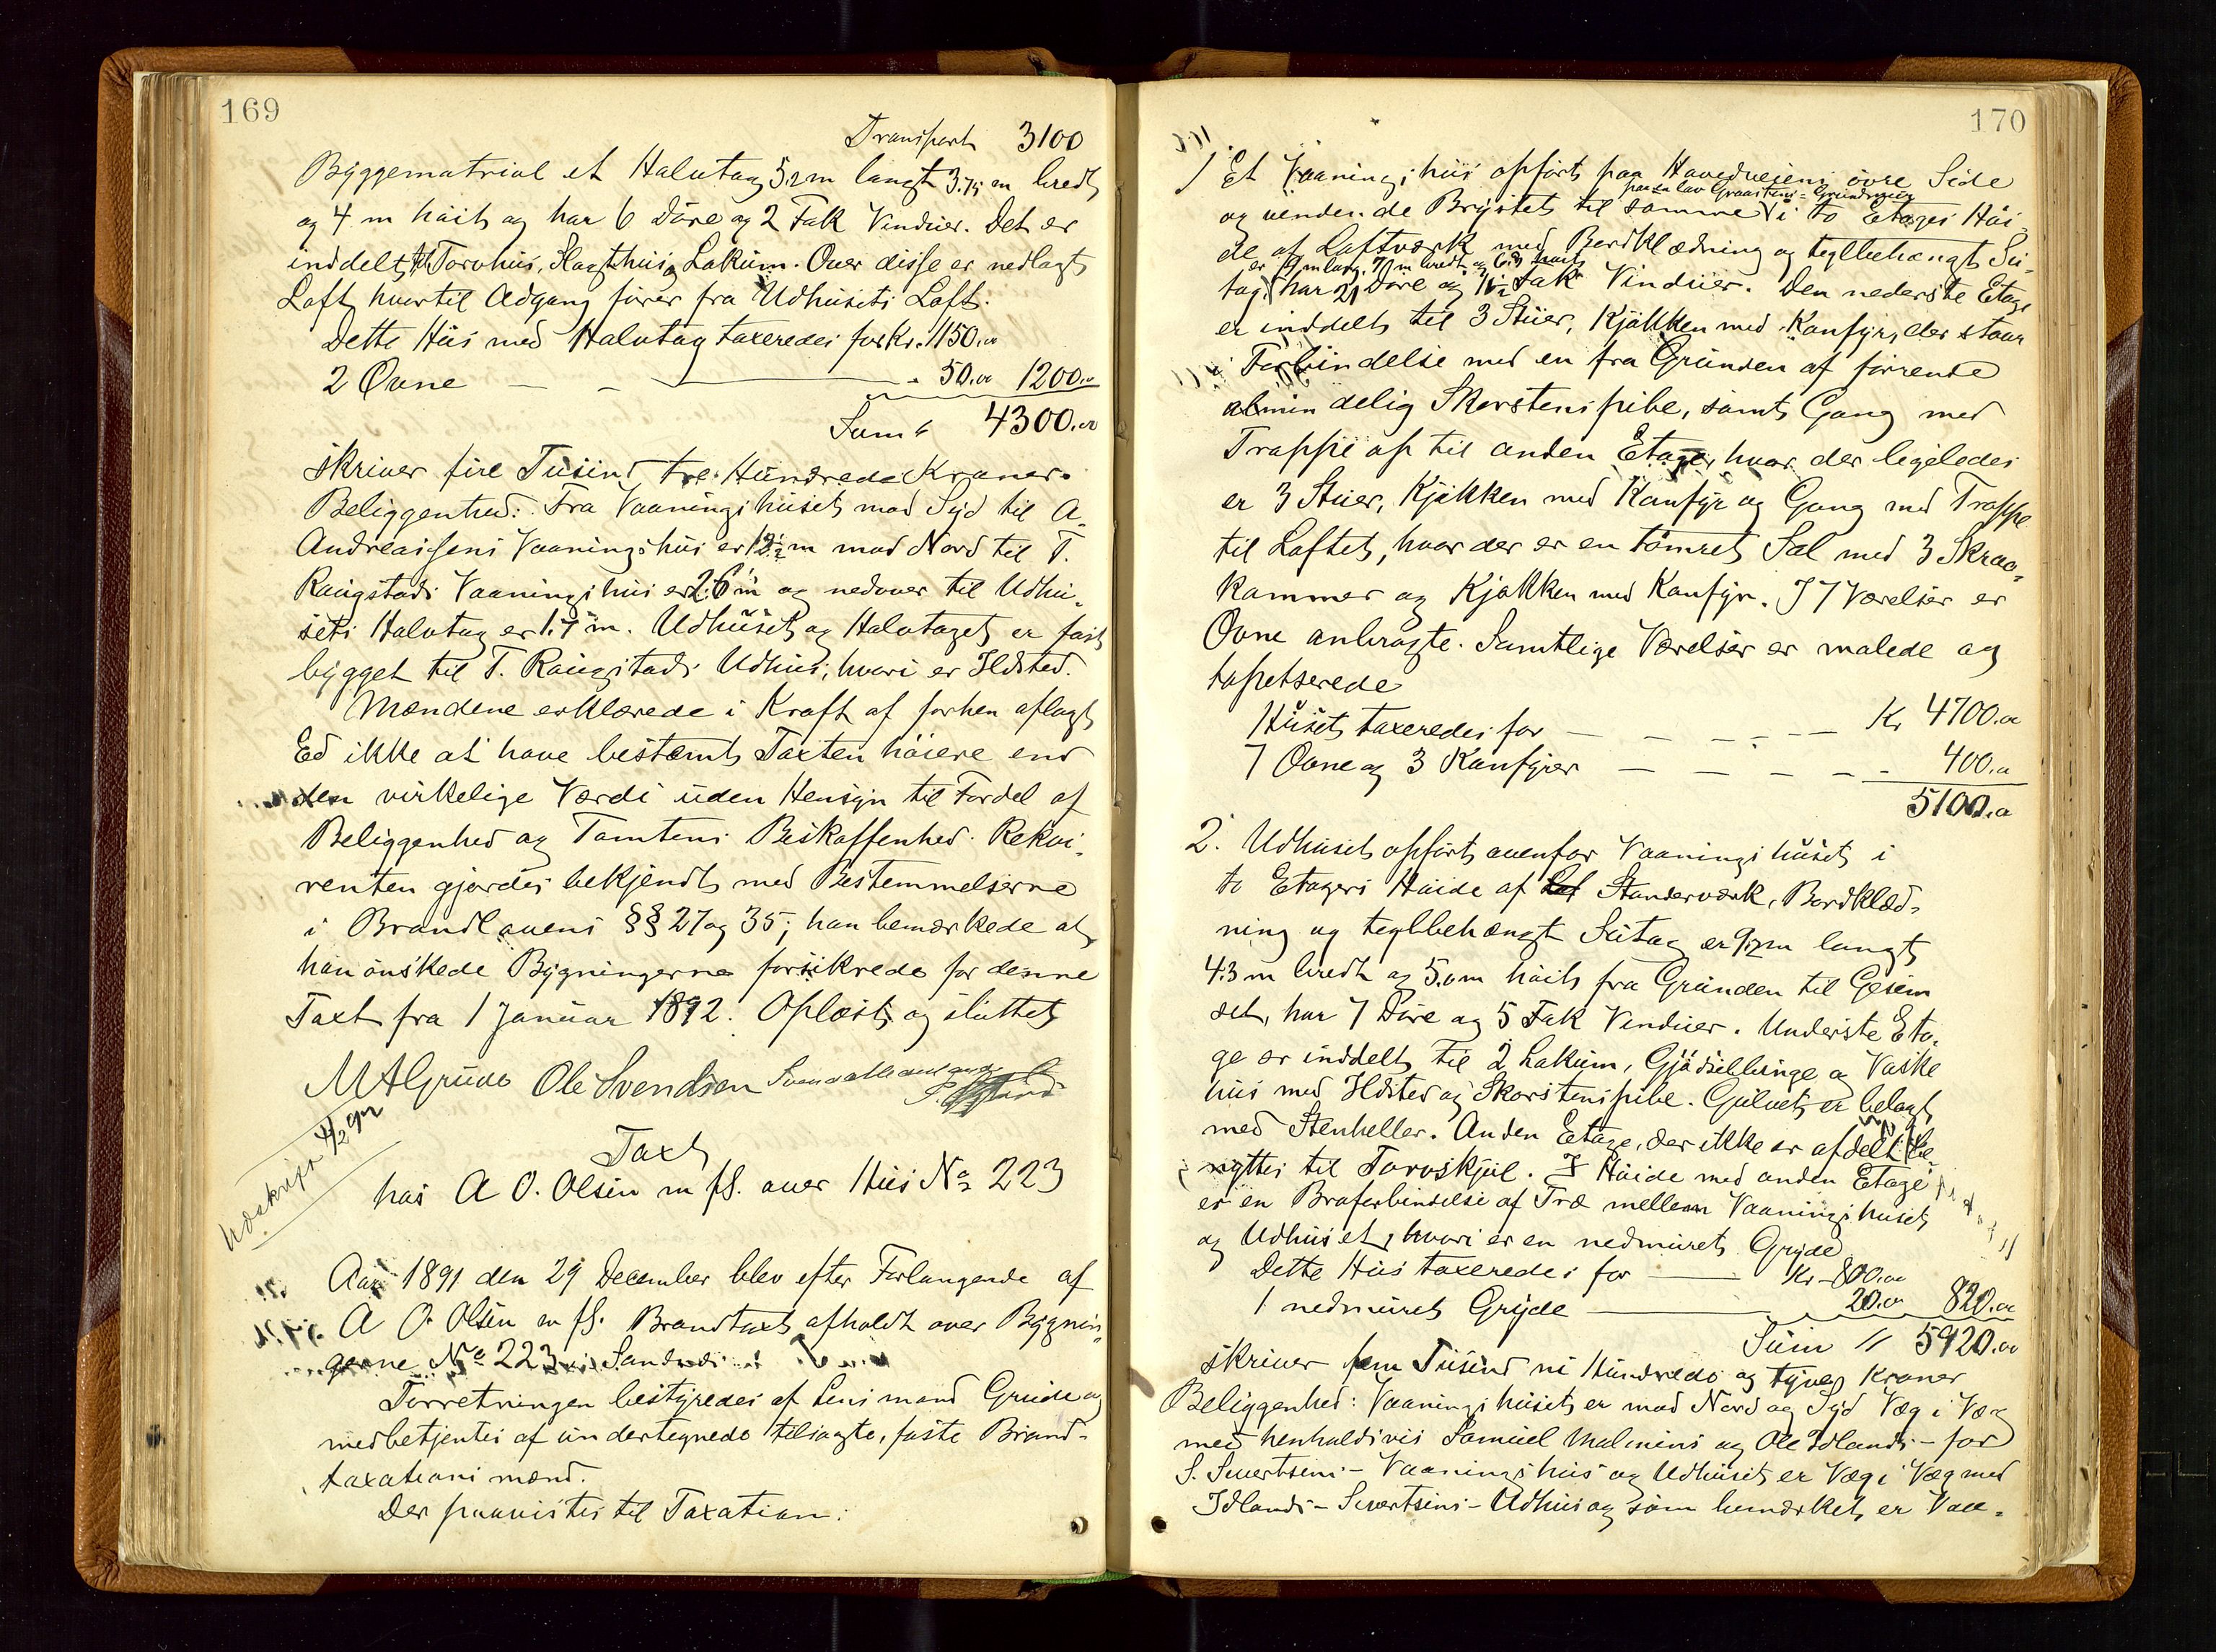 169
Transport 3100
Byggematrial et Halvtag 5.2 m langt 3.75 m bredt
og 4 m höit og har 6 Döre og 2 Fak Vinduer. Det er
inddelt til Torvhus, Slagthus og Lokum. Over disse er nedlagt
Loft hvortil Adgang förer fra Udhusets Loft.
Dette Hus med Halvtag taxeredes for Kr. 1150.00
2 Ovne — — — " 50.00 1200.00
Sum " 4300.00
skriver fire Tusind tre Hundrede Kroner.
Beliggenhed: Fra Vaaningshuset mod Syd til A.
Andreassens Vaaningshus er m mod Nord til T.
Raugstads Vaaningshus er 2.6 m og nedover til Udhu-
sets Halvtag er 1.7 m. Udhuset og Halvtaget er fast
bygget til T. Raugstads Udhus, hvori er Ildsted.
Mændene erklærede i Kraft af forhen aflagt
Ed ikke at have bestemt Taxten höiere end
den virkelige Værdi uden Hensyn til Fordel af
Beliggenhed og Tomtens Beskaffenhed. Rekvi-
renten gjordes bekjendt med Bestemmelserne
i Brandlovens §§ 27 og 35; han bemærkede at
han önskede Bygningerne forsikrede for denne
Taxt fra 1 Januar 1892. Oplæst og sluttet
M A Grude Ole Svendsen
Taxt
hos A O. Olsen m fl. over Hus No 223
Aar 1891 den 29 December blev efter Forlangende af
A O. Olsen m fl. Brandtaxt afholdt over Bygnin-
gerne No 223 i Sandnes
Forretningen bestyredes af Lensmand Grude og
medbetjentes af undertegnede tilsagte, faste Brand-
taxationsmænd.
Der paavistes til Taxation:
170
1 Et Vaaningshus opfört paa Hovedveiens övre Side
paa en lav Graastens-Grundmur
og vendende Brystet til samme i to Etages Höi-
de af Loftværk med Bordklædning og teglbehængt Su-
er m lang, 7 m bredt og 6.8 höit
tag, har 21 Döre og 16½ Fak Vinduer. Den nederste Etage
er inddelt til 3 Stuer, Kjökken med Komfyr, der staar
i Forbindelse med en fra Grunden af förende
almindelig Skorstenspibe, samt Gang med
Trappe op til anden Etage, hvor der ligeledes
er 3 Stuer, Kjökken med Komfyr og Gang med Trappe
til Loftet, hvor der er en tömret Sal med 3 Skraa-
kammer og Kjökken med Komfyr. I 7 Værelser er
Ovne anbragte. Samtlige Værelser er malede og
tapetserede
Huset taxeredes for — — — — Kr 4700.00
7 Ovne og 3 Komfyrer — — — — - 400.00
5100.00
2. Udhuset opfört ovenfor Vaaningshuset i
to Etagers Höide af Standerværk, Bordklæd-
ning og teglbehængt Sutag er 9.2 m langt
4.3 m bredt og 5.0 m höit fra Grunden til Gesim
set, har 7 Döre og 5 Fak Vinduer. Underste Eta-
ge er inddelt til 2 Lokum, Gjödselbinge og Vaske
hus med Ildsted og Skorstenspibe. Gulvet er belagt
med Stenheller. Anden Etage, der ikke er afdelt be-
nyttes til Torvskjul. I Höide med anden Etage
er en Broforbindelse af Træ mellem Vaaningshuset
og Udhuset, hvori er en nedmuret Gryde
Dette Hus taxeredes for — Kr 800.00
1 nedmuret Gryde — 20.00 820.00
Sum " 5920.00
skriver fem Tusind ni Hundrede og tyve Kroner
Beliggenhed: Vaaningshuset er mod Nord og Syd Væg i Væg
med henholdsvis Samuel Malmins og Ole Idlands - for
S. Sivertsens - Vaaningshus og Udhuset er Væg i Væg med
Idlands - Sivertsens - Udhus og som bemærket er Vaa-